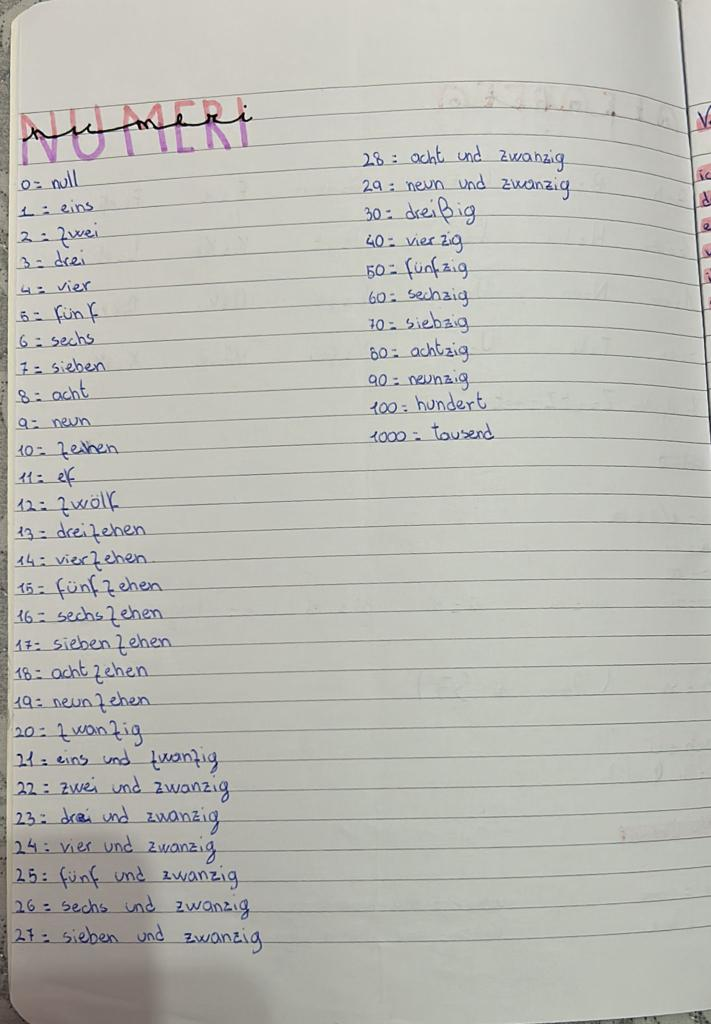 NUMERI
numeri
0= null
1= eins
2= zwei
3= drei
4= vier
5= fünf
6= sechs
7= sieben
8= acht
9= neun
10= zehen
11= elf
12= zwölf
13= dreizehen
14= vierzehen
15= fünfzehen
16= sechszehen
17= siebenzehen
18= achtzehen
19= neunzehen
20= zwanzig
21= eins und zwanzig
22= zwei und zwanzig
23= drei und zwanzig
24= vier und zwanzig
25= fünf und zwanzig
26= sechs und zwanzig
27= sieben und zwanzig
28= acht und zwanzig
29= neun und zwanzig
30= dreißig
40= vierzig
50= fünfzig
60= sechzig
70= siebzig
80= achtzig
90= neunzig
100= hundert
1000= tausend